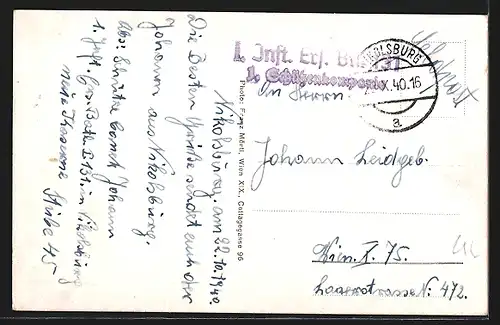 I. Inft. Ers. Btl.
1. Schützenkompanie
NIKOLSBURG
X.40.16
a
Feldpost
Nikolsburg, am 22.10.1940.
Die Besten Grüße sendet euch der
Johann aus Nikolsburg.
Abs: Schütze Johann
1. Inft. Ers. Batl. I. 131. in Nikolsburg
neue Kaserne Stube 45
Photo: Franz Mörtl, Wien XIX., Cottagegasse 96
An Herrn
Johann Leidgeb.
Wien. X. 75.
Laaerstrasse Nr. 472.